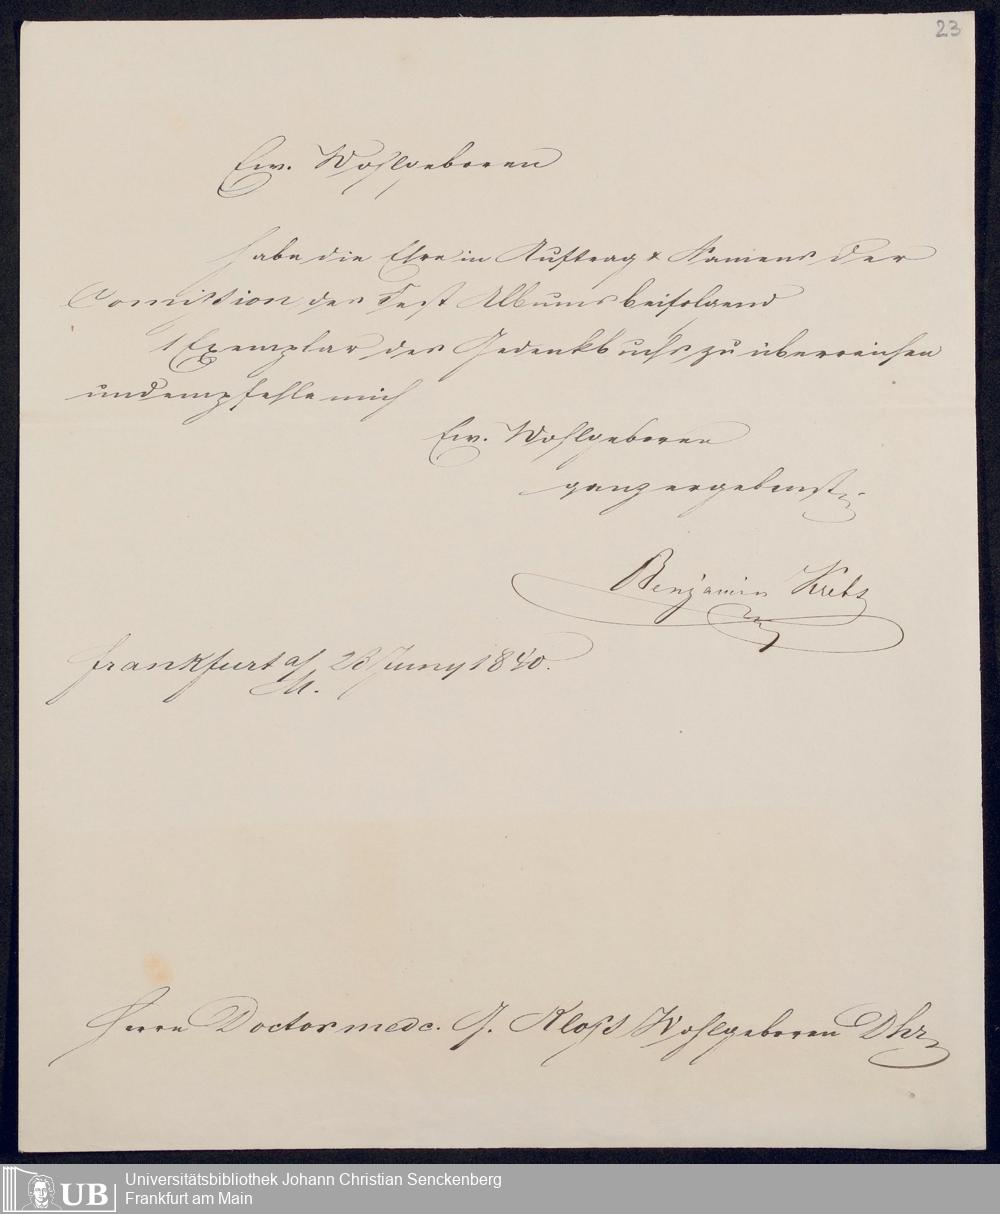 23
Ew. Wohlgeboren
habe die Ehre in Auftrag & Namens der
Comißion des Fest Albums beifolgend
1 Exemplar des Gedenkbuchs zu überreichen
und empfehle mich
Ew. Wohlgeboren
ganz ergebenst
Benjamin Krebs
Frankfurt a/M. 28 Juny 1840.
Herrn Doctor medc. G. Kloß Wohlgeboren Dhr
UB
Universitätsbibliothek Johann Christian Senckenberg
Frankfurt am Main